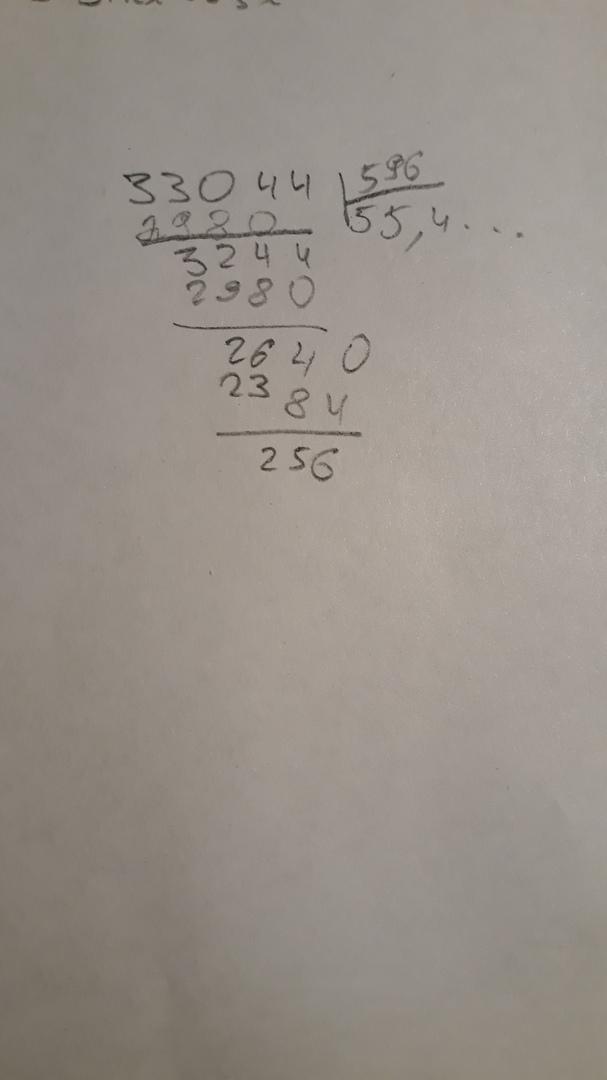 33044 596
2980 55,4...
3244
2980
2640
2384
256